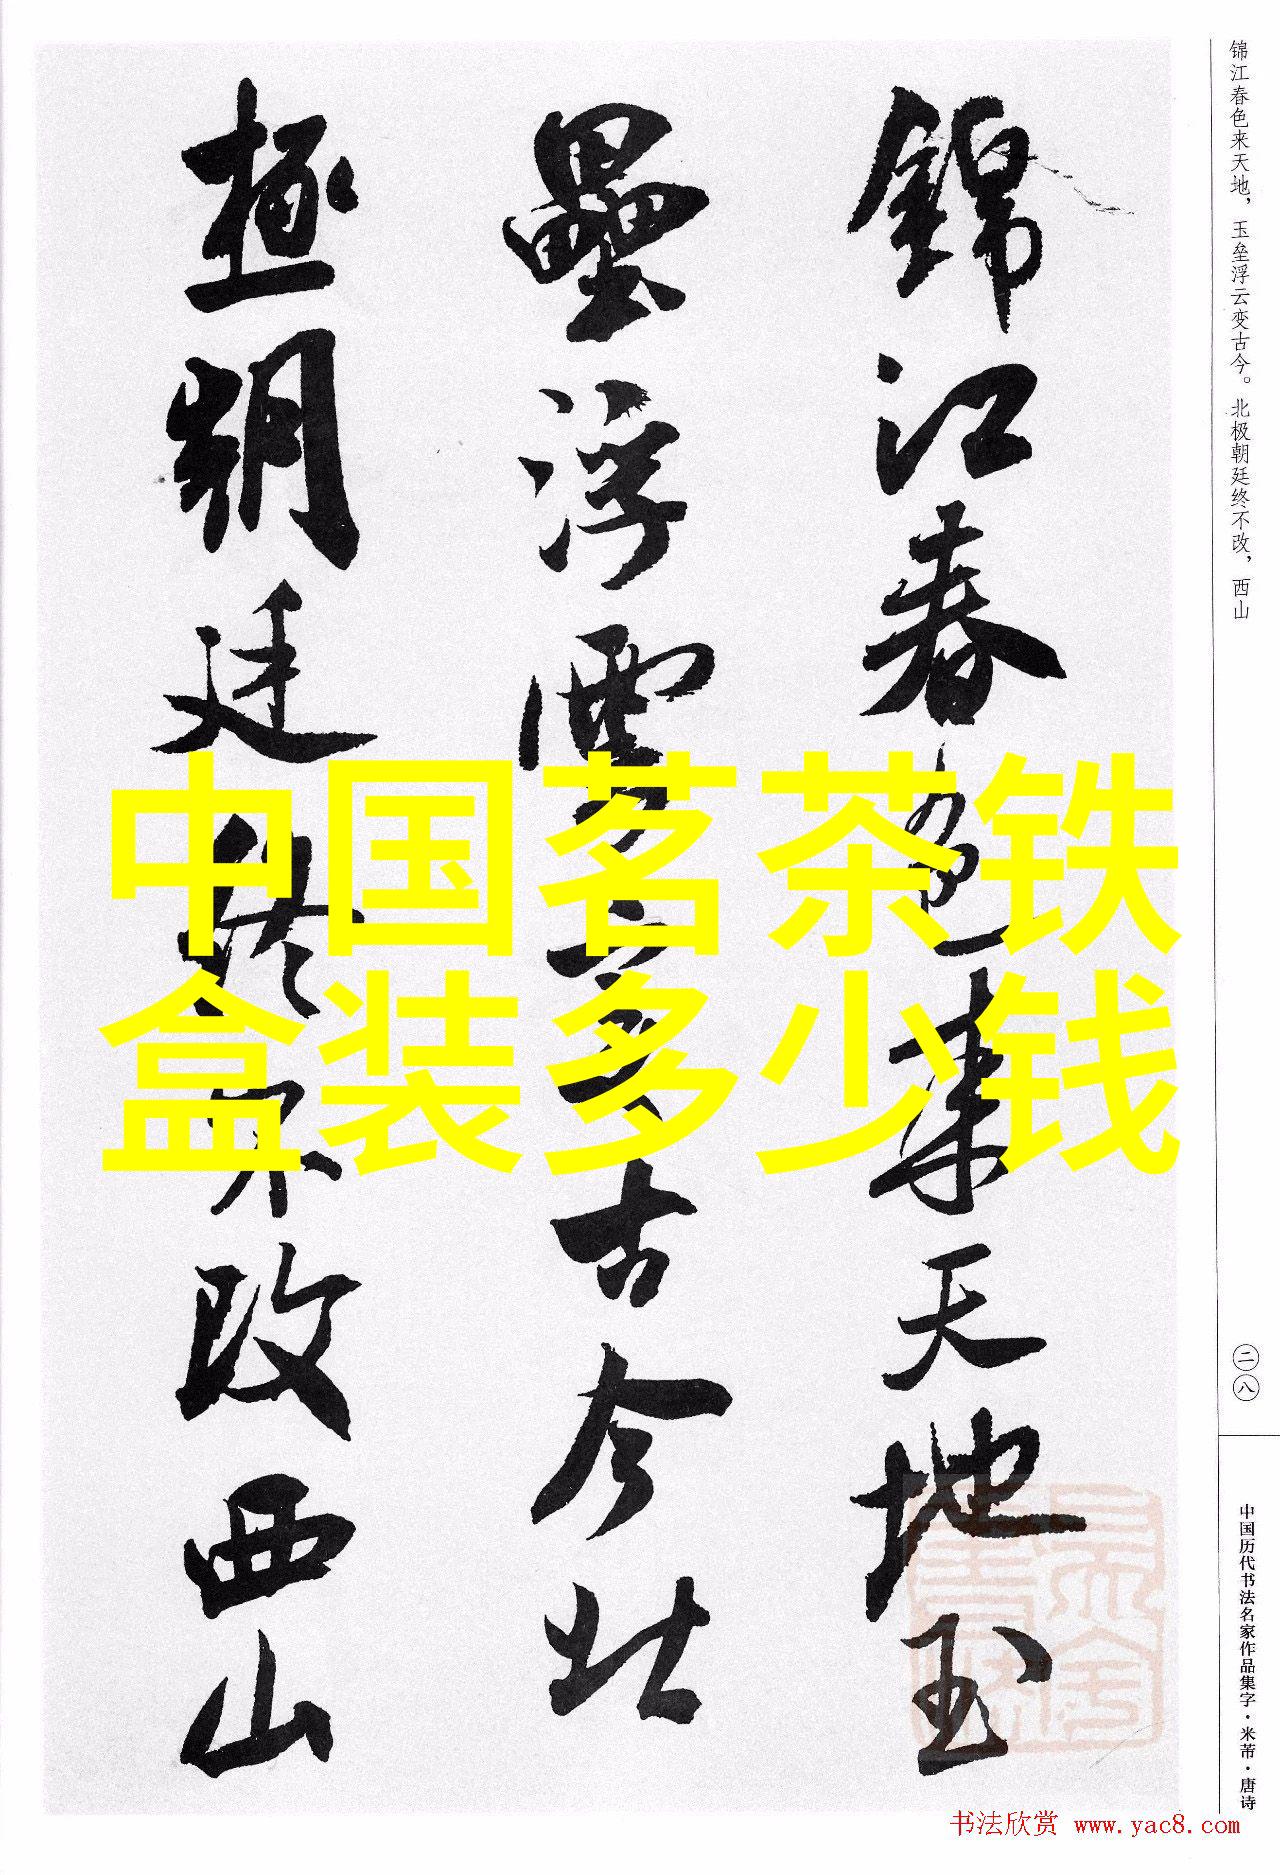 锦江春色来天地，玉垒浮云变古今。北极朝廷终不改，西山
錦江春色来天地玉
壘浮雲变古今北
極朝廷终不改西山
中国茗茶铁
盒装多少钱
二八
中国历代书法名家作品集字·米芾·唐诗
书法欣赏 www.yac8.com